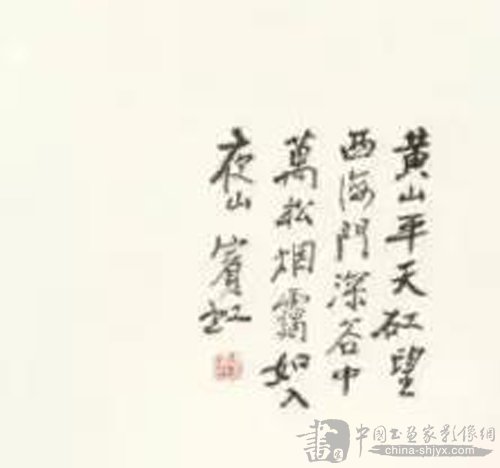 黄山平天矼望
西海門深谷中
萬松烟靄如入
夜山 賓虹
書 中國書畫家影像網
china-shjyx.com